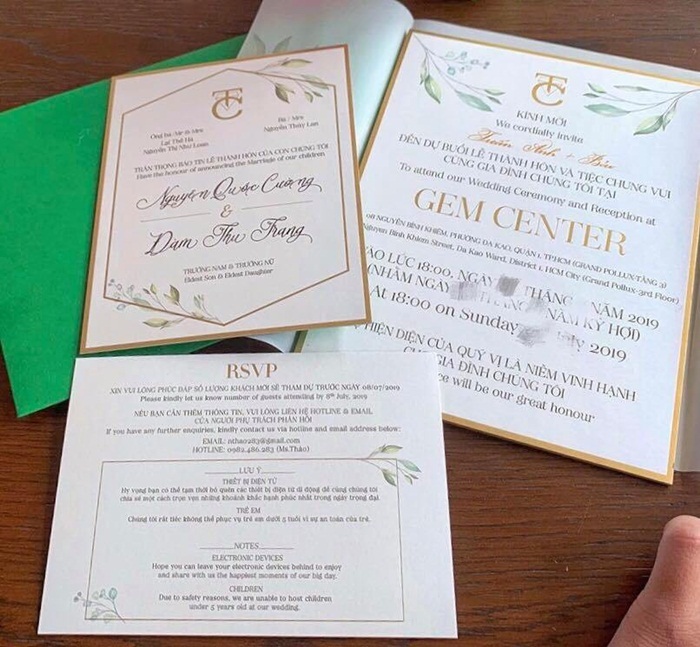 TC
Ông bà/Mr & Mrs
Lại Thế Hà
Nguyễn Thị Như Loan
Bà / Mrs
Nguyễn Thúy Lan
TRÂN TRỌNG BÁO TIN LỄ THÀNH HÔN CỦA CON CHÚNG TÔI
Have the honour of announcing the Marriage of our children
Nguyễn Quốc Cường
&
Đàm Thu Trang
TRƯỞNG NAM & TRƯỞNG NỮ
Eldest Son & Eldest Daughter
TC
KÍNH MỜI
We cordially invite
Tuấn Anh +
ĐẾN DỰ BUỔI LỄ THÀNH HÔN VÀ TIỆC CHUNG VUI
CÙNG GIA ĐÌNH CHÚNG TÔI TẠI
To attend our Wedding Ceremony and Reception at
GEM CENTER
08 NGUYỄN BỈNH KHIÊM, PHƯỜNG ĐA KAO, QUẬN 1, TP.HCM (GRAND POLLUX-TẦNG 3)
Nguyen Binh Khiem Street, Da Kao Ward, District 1, HCM City (Grand Pollux-3rd Floor)
VÀO LÚC 18:00, NGÀY THÁNG NĂM 2019
(NHẰM NGÀY THÁNG NĂM KỶ HỢI)
At 18:00 on Sunday July 2019
HIỆN DIỆN CỦA QUÝ VỊ LÀ NIỀM VINH HẠNH
GIA ĐÌNH CHÚNG TÔI
will be our great honour
RSVP
XIN VUI LÒNG PHÚC ĐÁP SỐ LƯỢNG KHÁCH MỜI SẼ THAM DỰ TRƯỚC NGÀY 08/07/2019
Please kindly let us know number of guests attending by 8th July, 2019
NẾU BẠN CẦN THÊM THÔNG TIN, VUI LÒNG LIÊN HỆ HOTLINE & EMAIL
CỦA NGƯỜI PHỤ TRÁCH PHẢN HỒI
If you have any further enquiries, kindly contact us via hotline and email address below:
EMAIL: nthao283@gmail.com
HOTLINE: 0982.486.283 (Ms.Thảo)
LƯU Ý
THIẾT BỊ ĐIỆN TỬ
Hy vọng bạn có thể tạm thời bỏ quên các thiết bị điện tử di động để cùng chúng tôi
chia sẻ một cách trọn vẹn những khoảnh khắc hạnh phúc nhất trong ngày trọng đại.
TRẺ EM
Chúng tôi rất tiếc không thể phục vụ trẻ em dưới 5 tuổi vì sự an toàn của trẻ.
NOTES
ELECTRONIC DEVICES
Hope you can leave your electronic devices behind to enjoy
and share with us the happiest moments of our big day.
CHILDREN
Due to safety reasons, we are unable to host children
under 5 years old at our wedding.